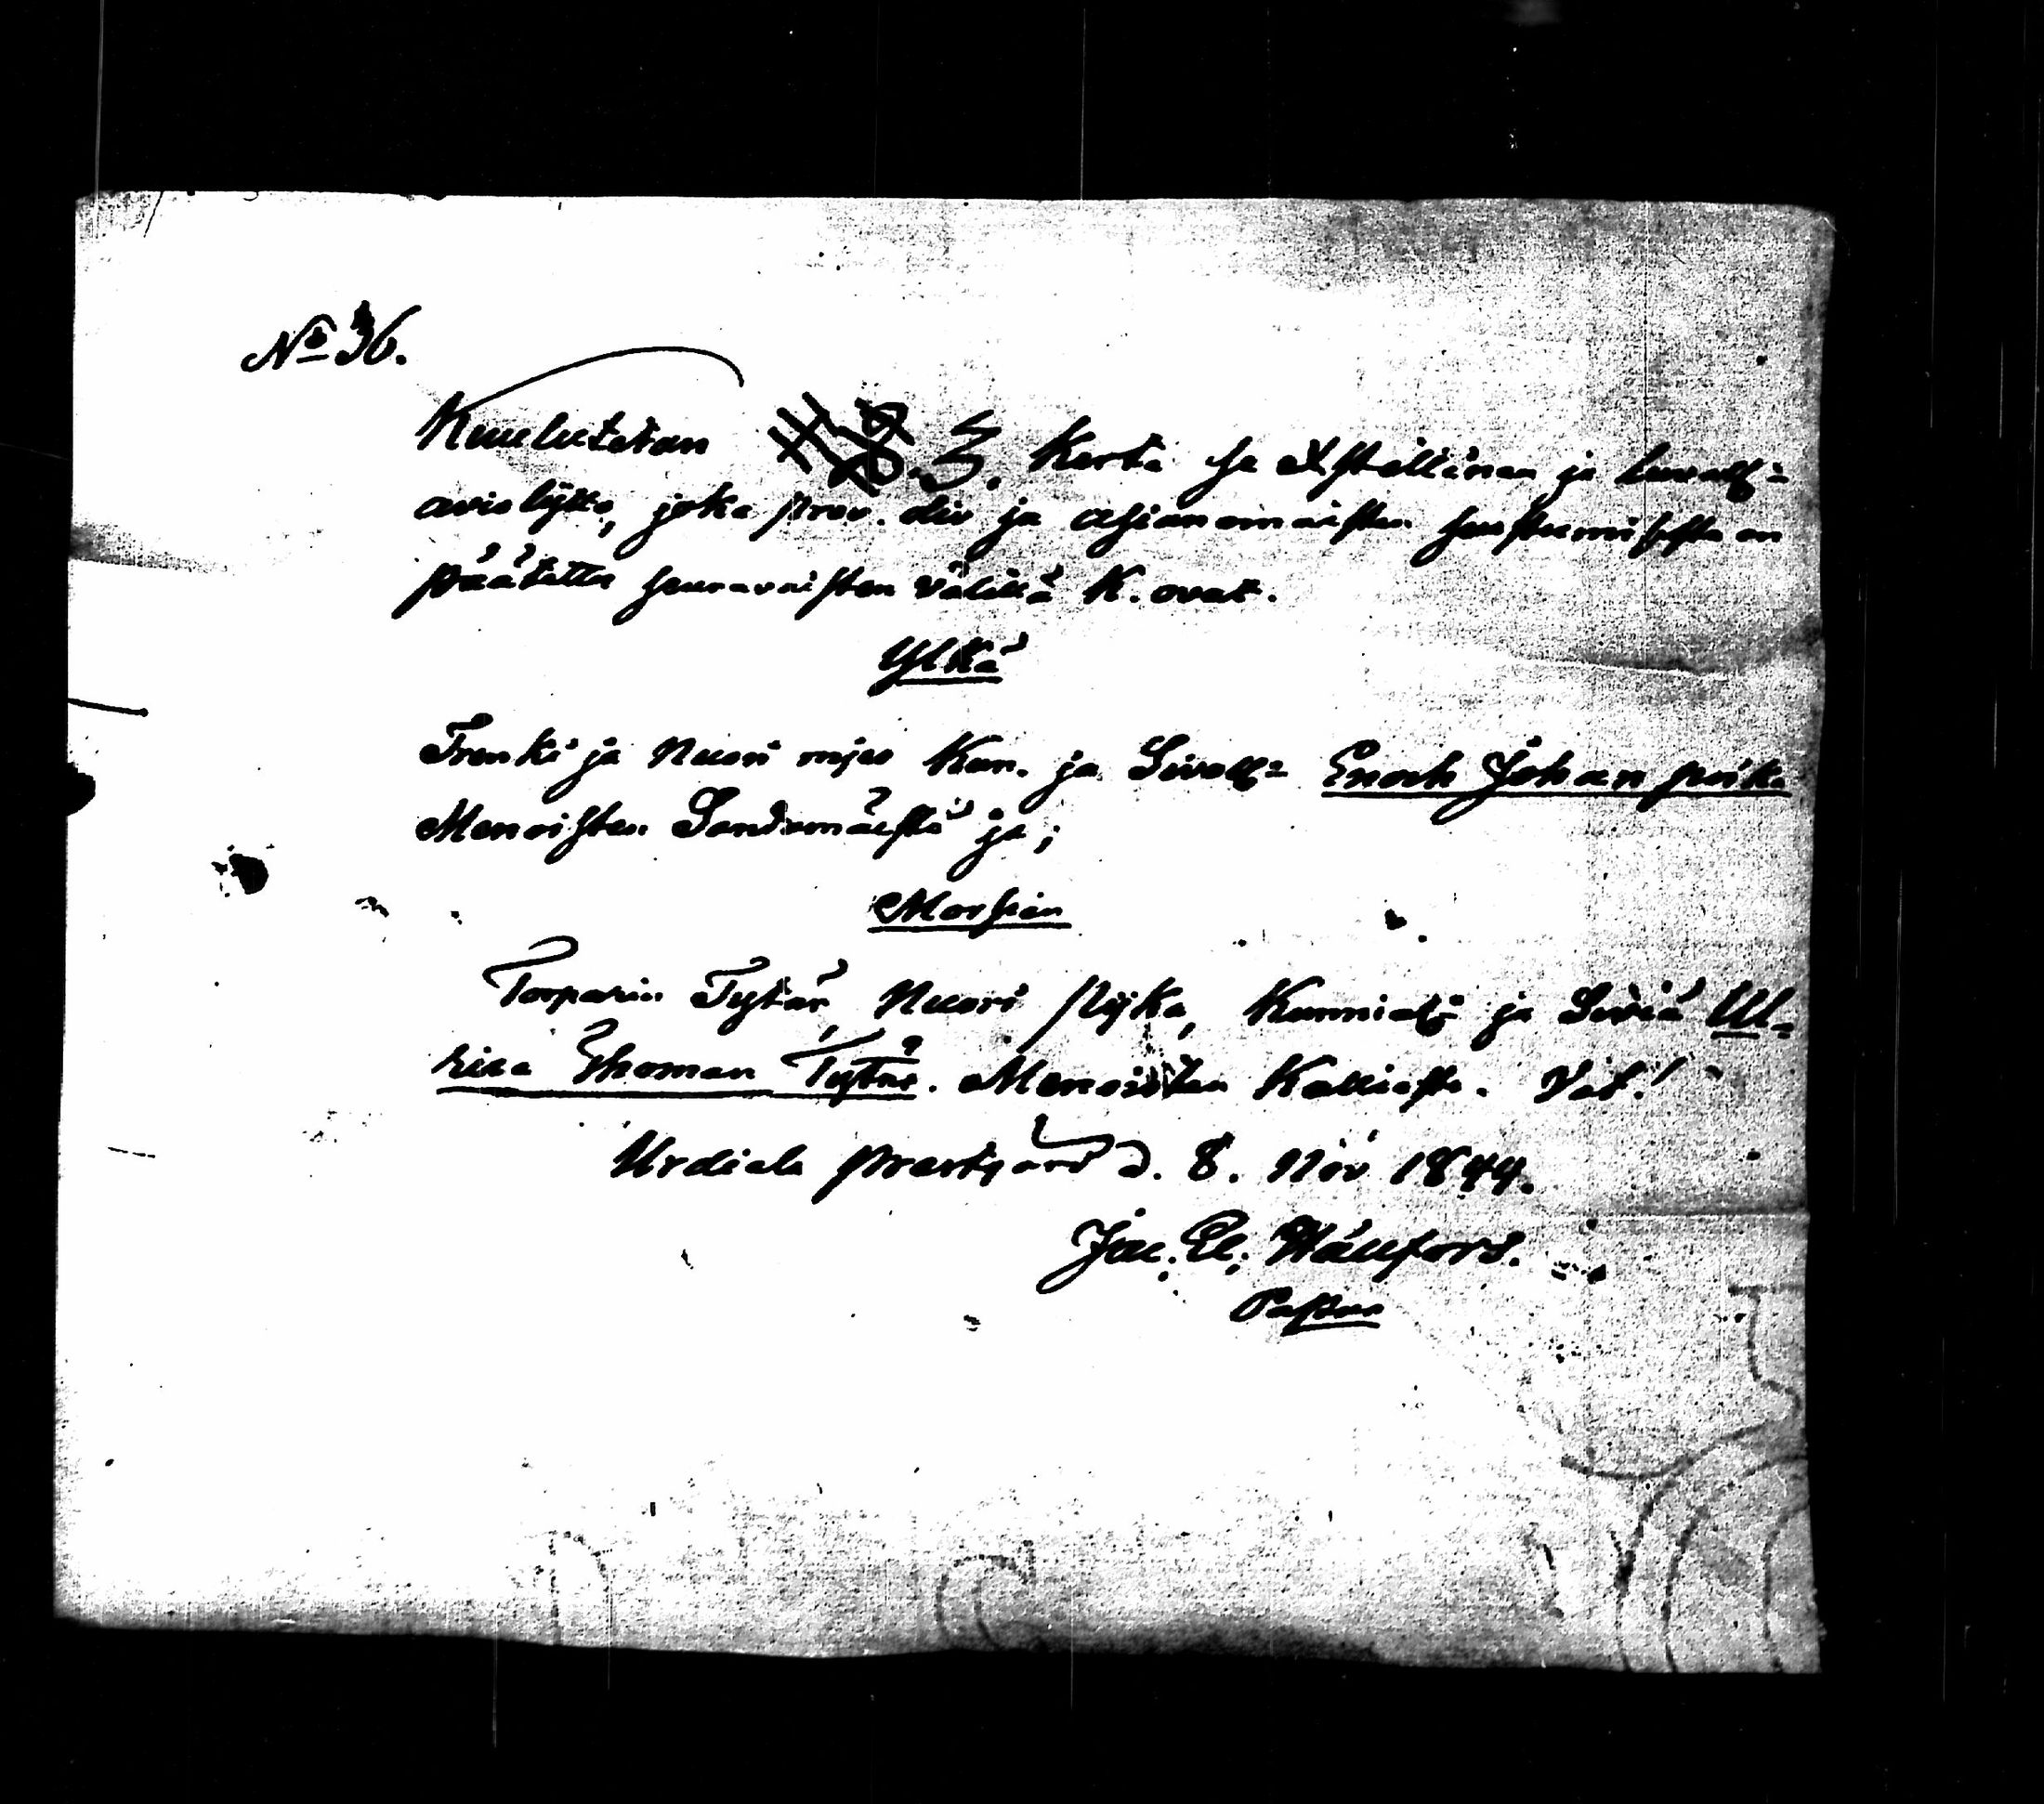 No 36.
Kuulutetan 3. Kerta se Xstillinen ja luvall:
avioliitto, joka prov. div ja asianomaisten suostumisesta on
päätetty seuravaisten välillä K. ovat.
Ylkä
Trenki ja Nuori mjes Kun. ja Sivall: Enoch Johan poika
Menoisten Sandamäestä ja;
Morsian
Torparin Tytär, Nuori pijka, Kunniall: ja Siviä Ul-
rica Thoman Tytär. Menoisten Kalliosta. Vit.!
Urdiala prestgård d. 8. Nov 1844.
Jac. El. Hällfors.
Pastor